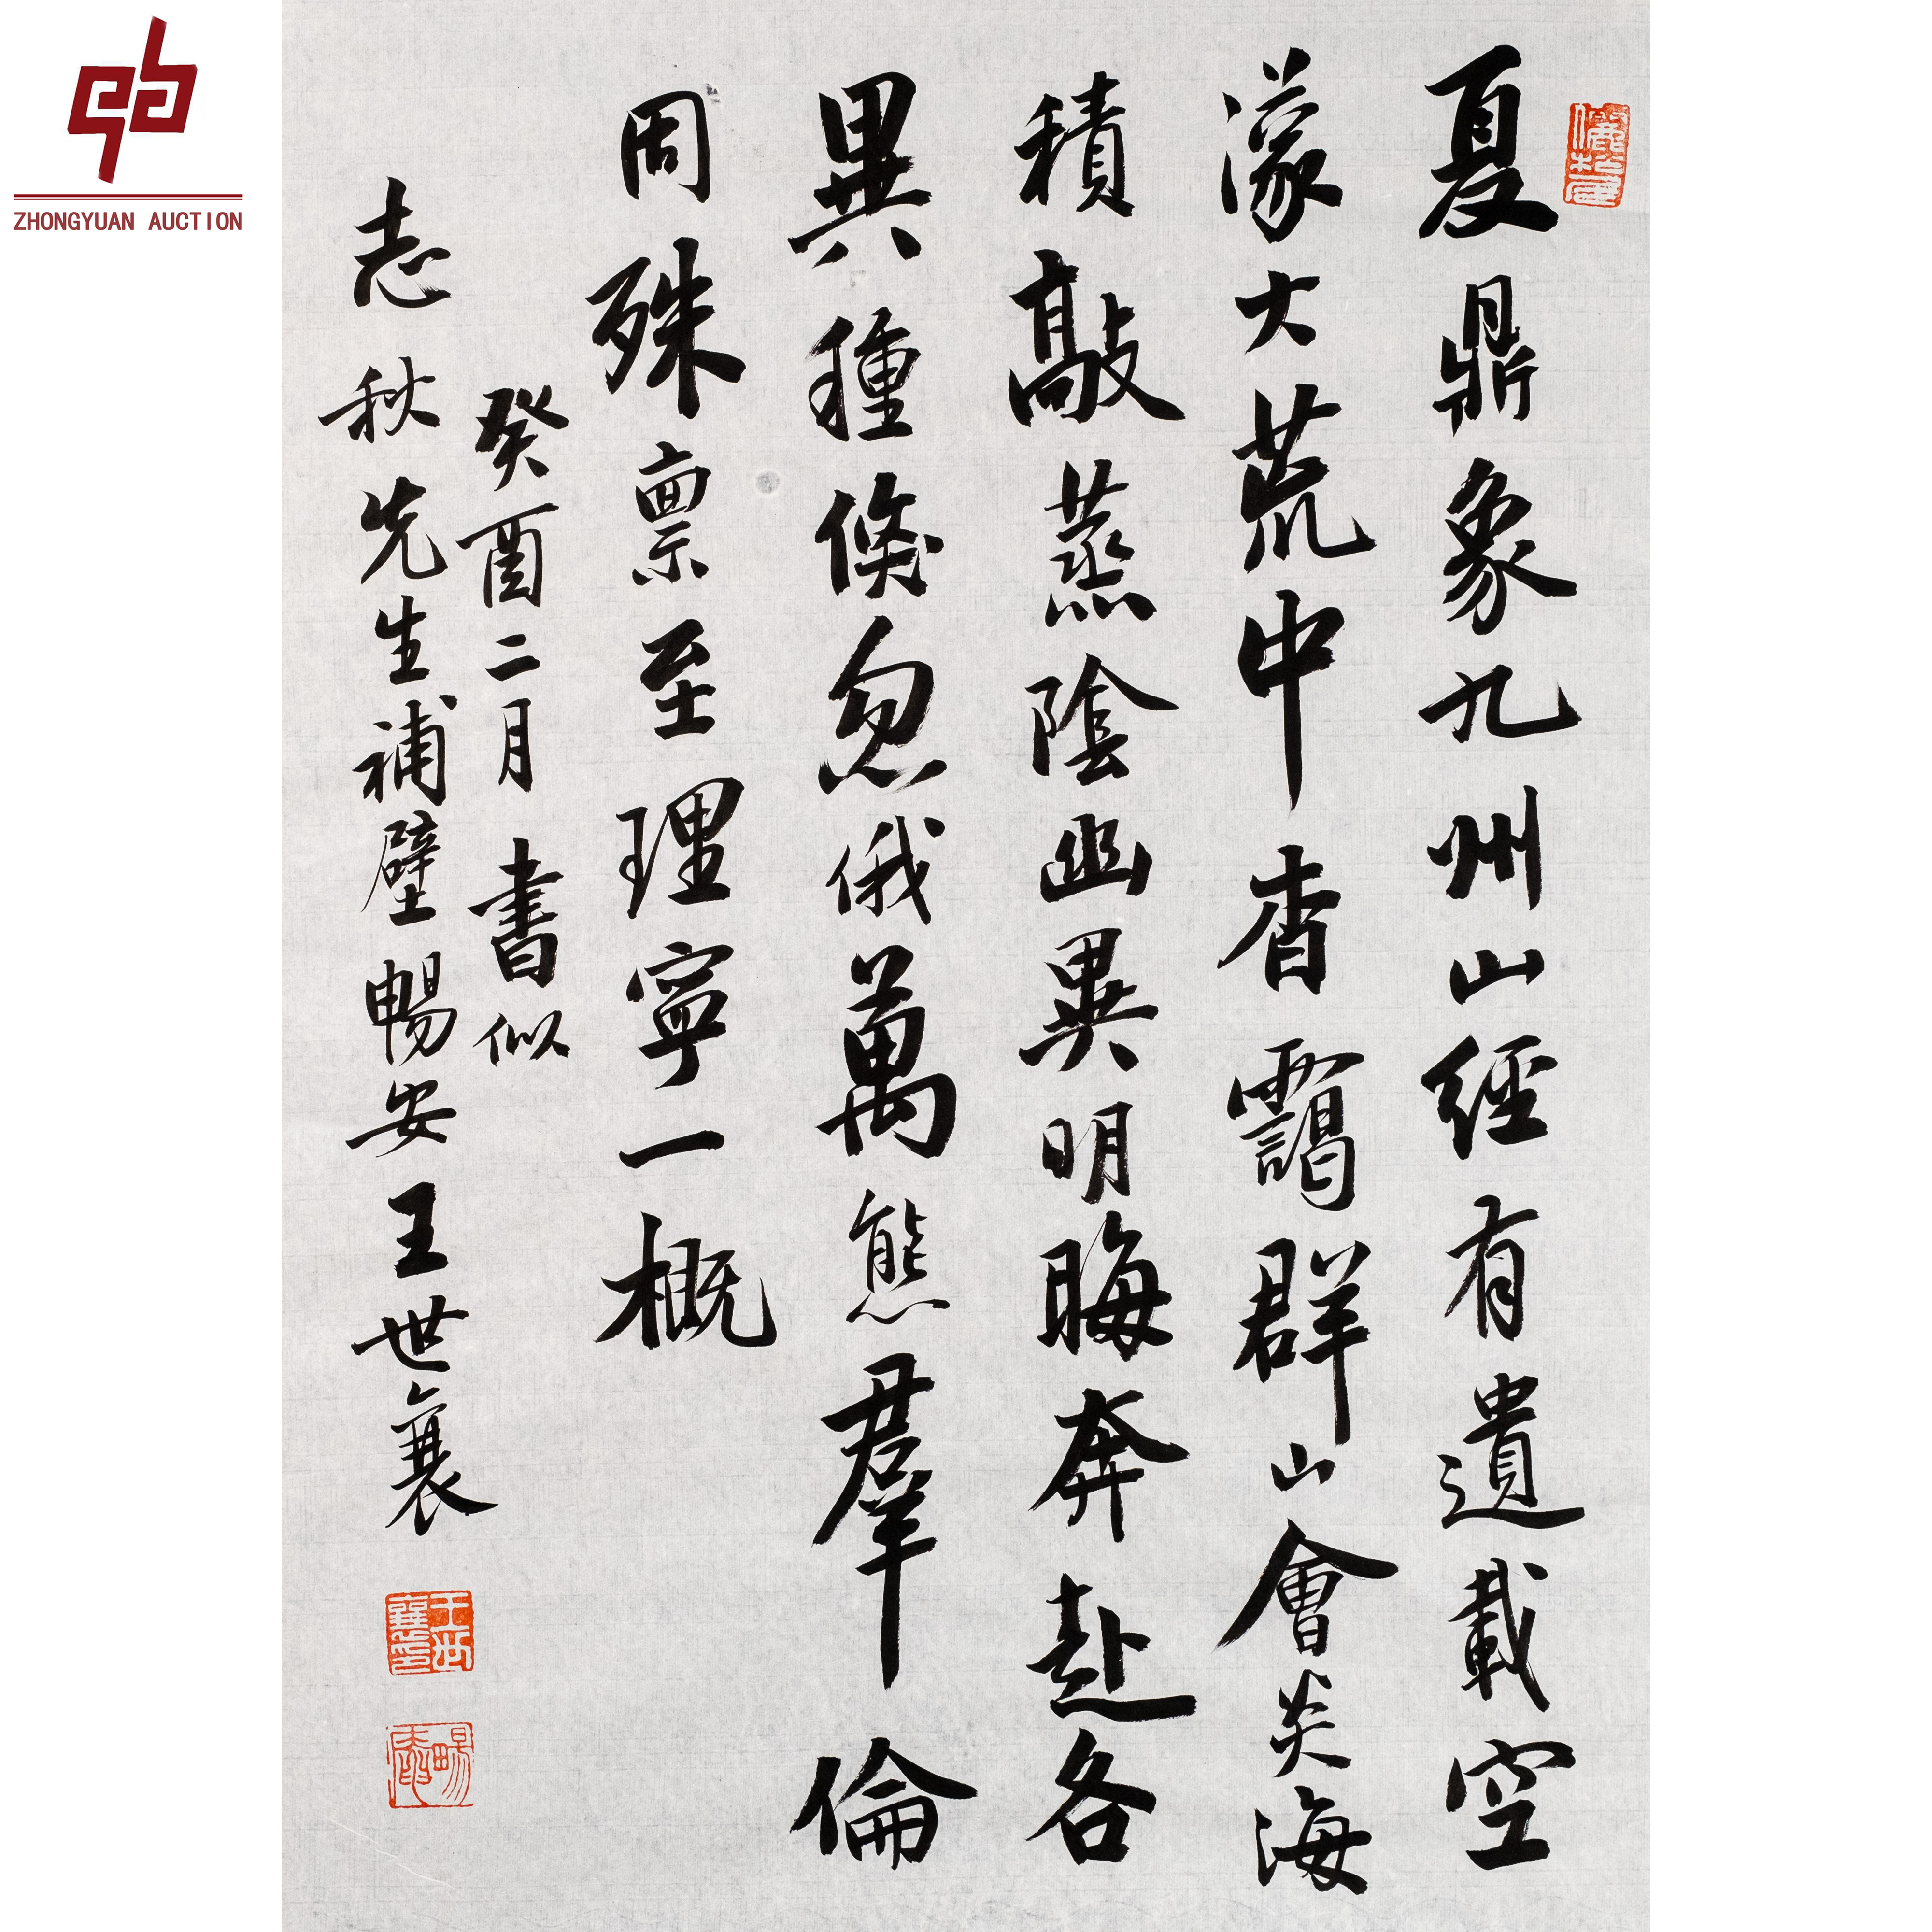 ZHONGYUAN AUCTION
夏鼎象九州山經有遺載空
濛大荒中杳靄群山會炎海
積敲蒸陰幽異明晦奔赴各
異種倏忽俄萬態羣倫
固殊稟至理寧一概
癸酉二月書似
志秋先生補壁暢安王世襄
王世襄印
暢安